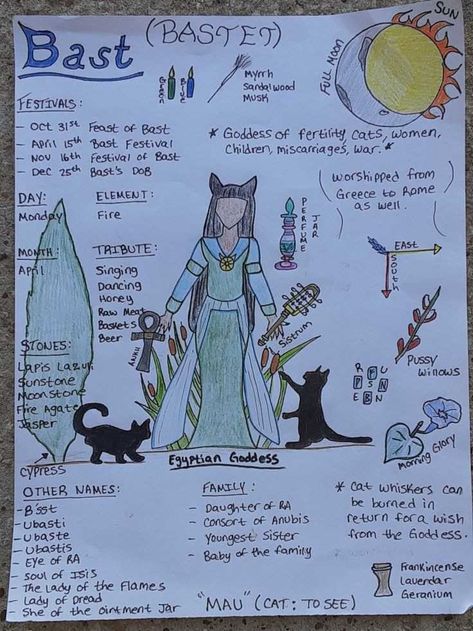 Bast
(BASTET)
SUN
FULL MOON
Green
Blue
Myrrh
Sandalwood
Musk
FESTIVALS:
- Oct 31st Feast of Bast
- April 15th Bast Festival
- Nov 16th Festival of Bast
- Dec 25th Bast's DOB
* Goddess of fertility, cats, women,
children, miscarriages, war. *
(Worshipped from
Greece to Rome
as well.)
DAY:
Monday
ELEMENT:
Fire
PERFUME
JAR
EAST
SOUTH
MONTH:
April
TRIBUTE:
Singing
Dancing
Honey
Raw Meat
Baskets
Beer
ANKH
Sistrum
Pussy
Willows
STONES:
Lapis Lazuli
Sunstone
Moonstone
Fire Agate
Jasper
Morning Glory
CYPRESS
Egyptian Goddess
OTHER NAMES:
- B'sst
- Ubasti
- Ubaste
- Ubastis
- Eye of RA
- Soul of Isis
- The Lady of the Flames
- Lady of Dread
- She of the Ointment Jar
FAMILY:
- Daughter of RA
- Consort of Anubis
- Youngest Sister
- Baby of the family
* Cat whiskers can
be burned in
return for a wish
from the Goddess.
Frankincense
Lavendar
Geranium
"MAU" (CAT: TO SEE)